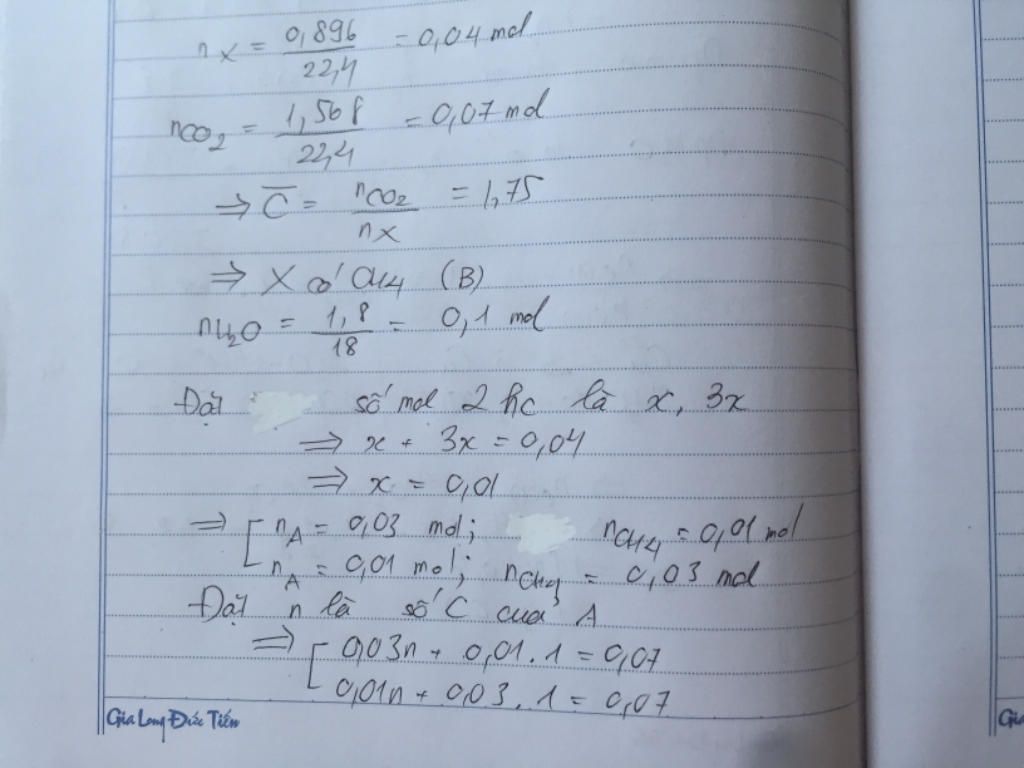 n_X = 0,896/22,4 = 0,04 mol
n_CO₂ = 1,568/22,4 = 0,07 mol
⇒ C̅ = n_CO₂/n_X = 1,75
⇒ X có CH₄ (B)
n_H₂O = 1,8/18 = 0,1 mol
Đặt số mol 2 hc là x, 3x
⇒ x + 3x = 0,04
⇒ x = 0,01
⇒ [ n_A = 0,03 mol; n_CH₄ = 0,01 mol
n_A = 0,01 mol; n_CH₄ = 0,03 mol
Đặt n là số C của A
⇒ [ 0,03n + 0,01.1 = 0,07
0,01n + 0,03.1 = 0,07
Gia Long Đức Tiến